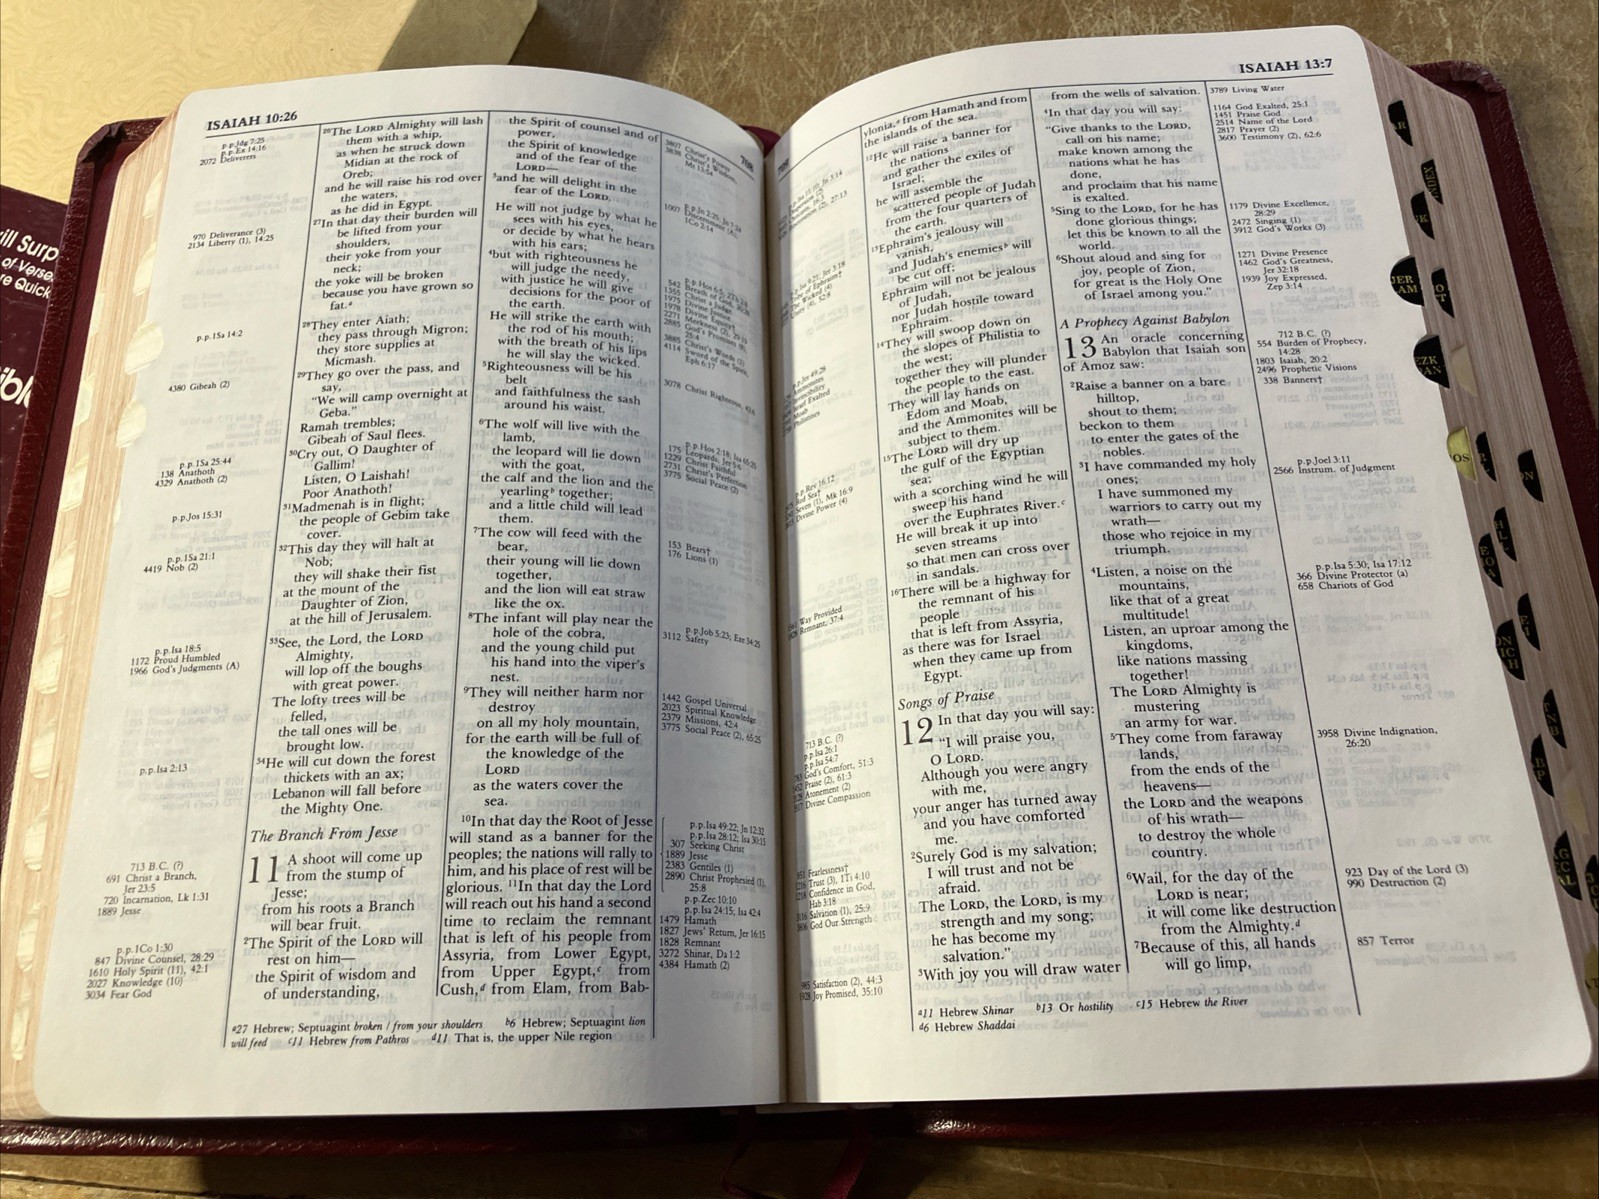 ISAIAH 10:26
p.p.Jdg 7:25
p.p.Ex 14:16
2072 Deliverers
970 Deliverance (3)
2134 Liberty (1), 14:25
p.p.1Sa 14:2
4380 Gibeah (2)
p.p.1Sa 25:44
138 Anathoth
4329 Anathoth (2)
p.p.Jos 15:31
p.p.1Sa 21:1
4419 Nob (2)
p.p.Isa 18:5
1172 Proud Humbled
1966 God's Judgments (A)
p.p.Isa 2:13
713 B.C. (?)
691 Christ a Branch,
Jer 23:5
720 Incarnation, Lk 1:31
1889 Jesse
p.p.1Co 1:30
847 Divine Counsel, 28:29
1610 Holy Spirit (11), 42:1
2027 Knowledge (10)
3034 Fear God
26The LORD Almighty will lash
them with a whip,
as when he struck down
Midian at the rock of
Oreb;
and he will raise his rod over
the waters,
as he did in Egypt.
27In that day their burden will
be lifted from your
shoulders,
their yoke from your
neck;
the yoke will be broken
because you have grown so
fat.a
28They enter Aiath;
they pass through Migron;
they store supplies at
Micmash.
29They go over the pass, and
say,
"We will camp overnight at
Geba."
Ramah trembles;
Gibeah of Saul flees.
30Cry out, O Daughter of
Gallim!
Listen, O Laishah!
Poor Anathoth!
31Madmenah is in flight;
the people of Gebim take
cover.
32This day they will halt at
Nob;
they will shake their fist
at the mount of the
Daughter of Zion,
at the hill of Jerusalem.
33See, the Lord, the LORD
Almighty,
will lop off the boughs
with great power.
The lofty trees will be
felled,
the tall ones will be
brought low.
34He will cut down the forest
thickets with an ax;
Lebanon will fall before
the Mighty One.
The Branch From Jesse
11 A shoot will come up
from the stump of
Jesse;
from his roots a Branch
will bear fruit.
2The Spirit of the LORD will
rest on him—
the Spirit of wisdom and
of understanding,
the Spirit of counsel and of
power,
the Spirit of knowledge
and of the fear of the
LORD—
3and he will delight in the
fear of the LORD.
He will not judge by what he
sees with his eyes,
or decide by what he hears
with his ears;
4but with righteousness he
will judge the needy,
with justice he will give
decisions for the poor of
the earth.
He will strike the earth with
the rod of his mouth;
with the breath of his lips
he will slay the wicked.
5Righteousness will be his
belt
and faithfulness the sash
around his waist.
6The wolf will live with the
lamb,
the leopard will lie down
with the goat,
the calf and the lion and the
yearlingb together;
and a little child will lead
them.
7The cow will feed with the
bear,
their young will lie down
together,
and the lion will eat straw
like the ox.
8The infant will play near the
hole of the cobra,
and the young child put
his hand into the viper's
nest.
9They will neither harm nor
destroy
on all my holy mountain,
for the earth will be full of
the knowledge of the
LORD
as the waters cover the
sea.
10In that day the Root of Jesse
will stand as a banner for the
peoples; the nations will rally to
him, and his place of rest will be
glorious. 11In that day the Lord
will reach out his hand a second
time to reclaim the remnant
that is left of his people from
Assyria, from Lower Egypt,
from Upper Egypt,c from
Cush,d from Elam, from Bab-
708
3078 Christ Righteous,
p.p.Hos 2:18; Isa 65:25
175 Leopards, Jer 5:6
1229 Christ Faithful
2731 Christ's Perfection
3775 Social Peace (2)
153 Bears†
176 Lions (1)
p.p.Job 5:23; Eze 34:25
3112 Safety
1442 Gospel Universal
2023 Spiritual Knowledge
2379 Missions, 42:4
3775 Social Peace (2), 65:25
p.p.Isa 49:22; Jn 12:32
p.p.Isa 28:12; Isa 30:15
307 Seeking Christ
1889 Jesse
2383 Gentiles (1)
2890 Christ Prophesied (1),
25:8
p.p.Zec 10:10
p.p.Isa 24:15; Isa 42:4
1479 Hamath
1827 Jews' Return, Jer 16:15
1828 Remnant
3272 Shinar, Da 1:2
4384 Hamath (2)
a27 Hebrew; Septuagint broken / from your shoulders b6 Hebrew; Septuagint lion
will feed c11 Hebrew from Pathros d11 That is, the upper Nile region
709
ISAIAH 13:7
ylonia,a from Hamath and from
the islands of the sea.
12He will raise a banner for
the nations
and gather the exiles of
Israel;
he will assemble the
scattered people of Judah
from the four quarters of
the earth.
13Ephraim's jealousy will
vanish,
and Judah's enemiesb will
be cut off;
Ephraim will not be jealous
of Judah,
nor Judah hostile toward
Ephraim.
14They will swoop down on
the slopes of Philistia to
the west;
together they will plunder
the people to the east.
They will lay hands on
Edom and Moab,
and the Ammonites will be
subject to them.
15The LORD will dry up
the gulf of the Egyptian
sea;
with a scorching wind he will
sweep his hand
over the Euphrates River.c
He will break it up into
seven streams
so that men can cross over
in sandals.
16There will be a highway for
the remnant of his
people
that is left from Assyria,
as there was for Israel
when they came up from
Egypt.
Songs of Praise
12 In that day you will say:
"I will praise you,
O LORD.
Although you were angry
with me,
your anger has turned away
and you have comforted
me.
2Surely God is my salvation;
I will trust and not be
afraid.
The LORD, the LORD, is my
strength and my song;
he has become my
salvation."
3With joy you will draw water
from the wells of salvation.
4In that day you will say:
"Give thanks to the LORD,
call on his name;
make known among the
nations what he has
done,
and proclaim that his name
is exalted.
5Sing to the LORD, for he has
done glorious things;
let this be known to all the
world.
6Shout aloud and sing for
joy, people of Zion,
for great is the Holy One
of Israel among you."
A Prophecy Against Babylon
13 An oracle concerning
Babylon that Isaiah son
of Amoz saw:
2Raise a banner on a bare
hilltop,
shout to them;
beckon to them
to enter the gates of the
nobles.
3I have commanded my holy
ones;
I have summoned my
warriors to carry out my
wrath—
those who rejoice in my
triumph.
4Listen, a noise on the
mountains,
like that of a great
multitude!
Listen, an uproar among the
kingdoms,
like nations massing
together!
The LORD Almighty is
mustering
an army for war.
5They come from faraway
lands,
from the ends of the
heavens—
the LORD and the weapons
of his wrath—
to destroy the whole
country.
6Wail, for the day of the
LORD is near;
it will come like destruction
from the Almighty.d
7Because of this, all hands
will go limp,
3789 Living Water
1164 God Exalted, 25:1
1451 Praise God
2514 Name of the Lord
2817 Prayer (2)
3600 Testimony (2), 62:6
1179 Divine Excellence,
28:29
2472 Singing (1)
3912 God's Works (3)
1271 Divine Presence
1462 God's Greatness,
Jer 32:18
1939 Joy Expressed,
Zep 3:14
712 B.C. (?)
554 Burden of Prophecy,
14:28
1803 Isaiah, 20:2
2496 Prophetic Visions
338 Banners†
p.p.Joel 3:11
2566 Instrum. of Judgment
p.p.Isa 5:30; Isa 17:12
366 Divine Protector (a)
658 Chariots of God
3958 Divine Indignation,
26:20
923 Day of the Lord (3)
990 Destruction (2)
857 Terror
a11 Hebrew Shinar b13 Or hostility c15 Hebrew the River
d6 Hebrew Shaddai